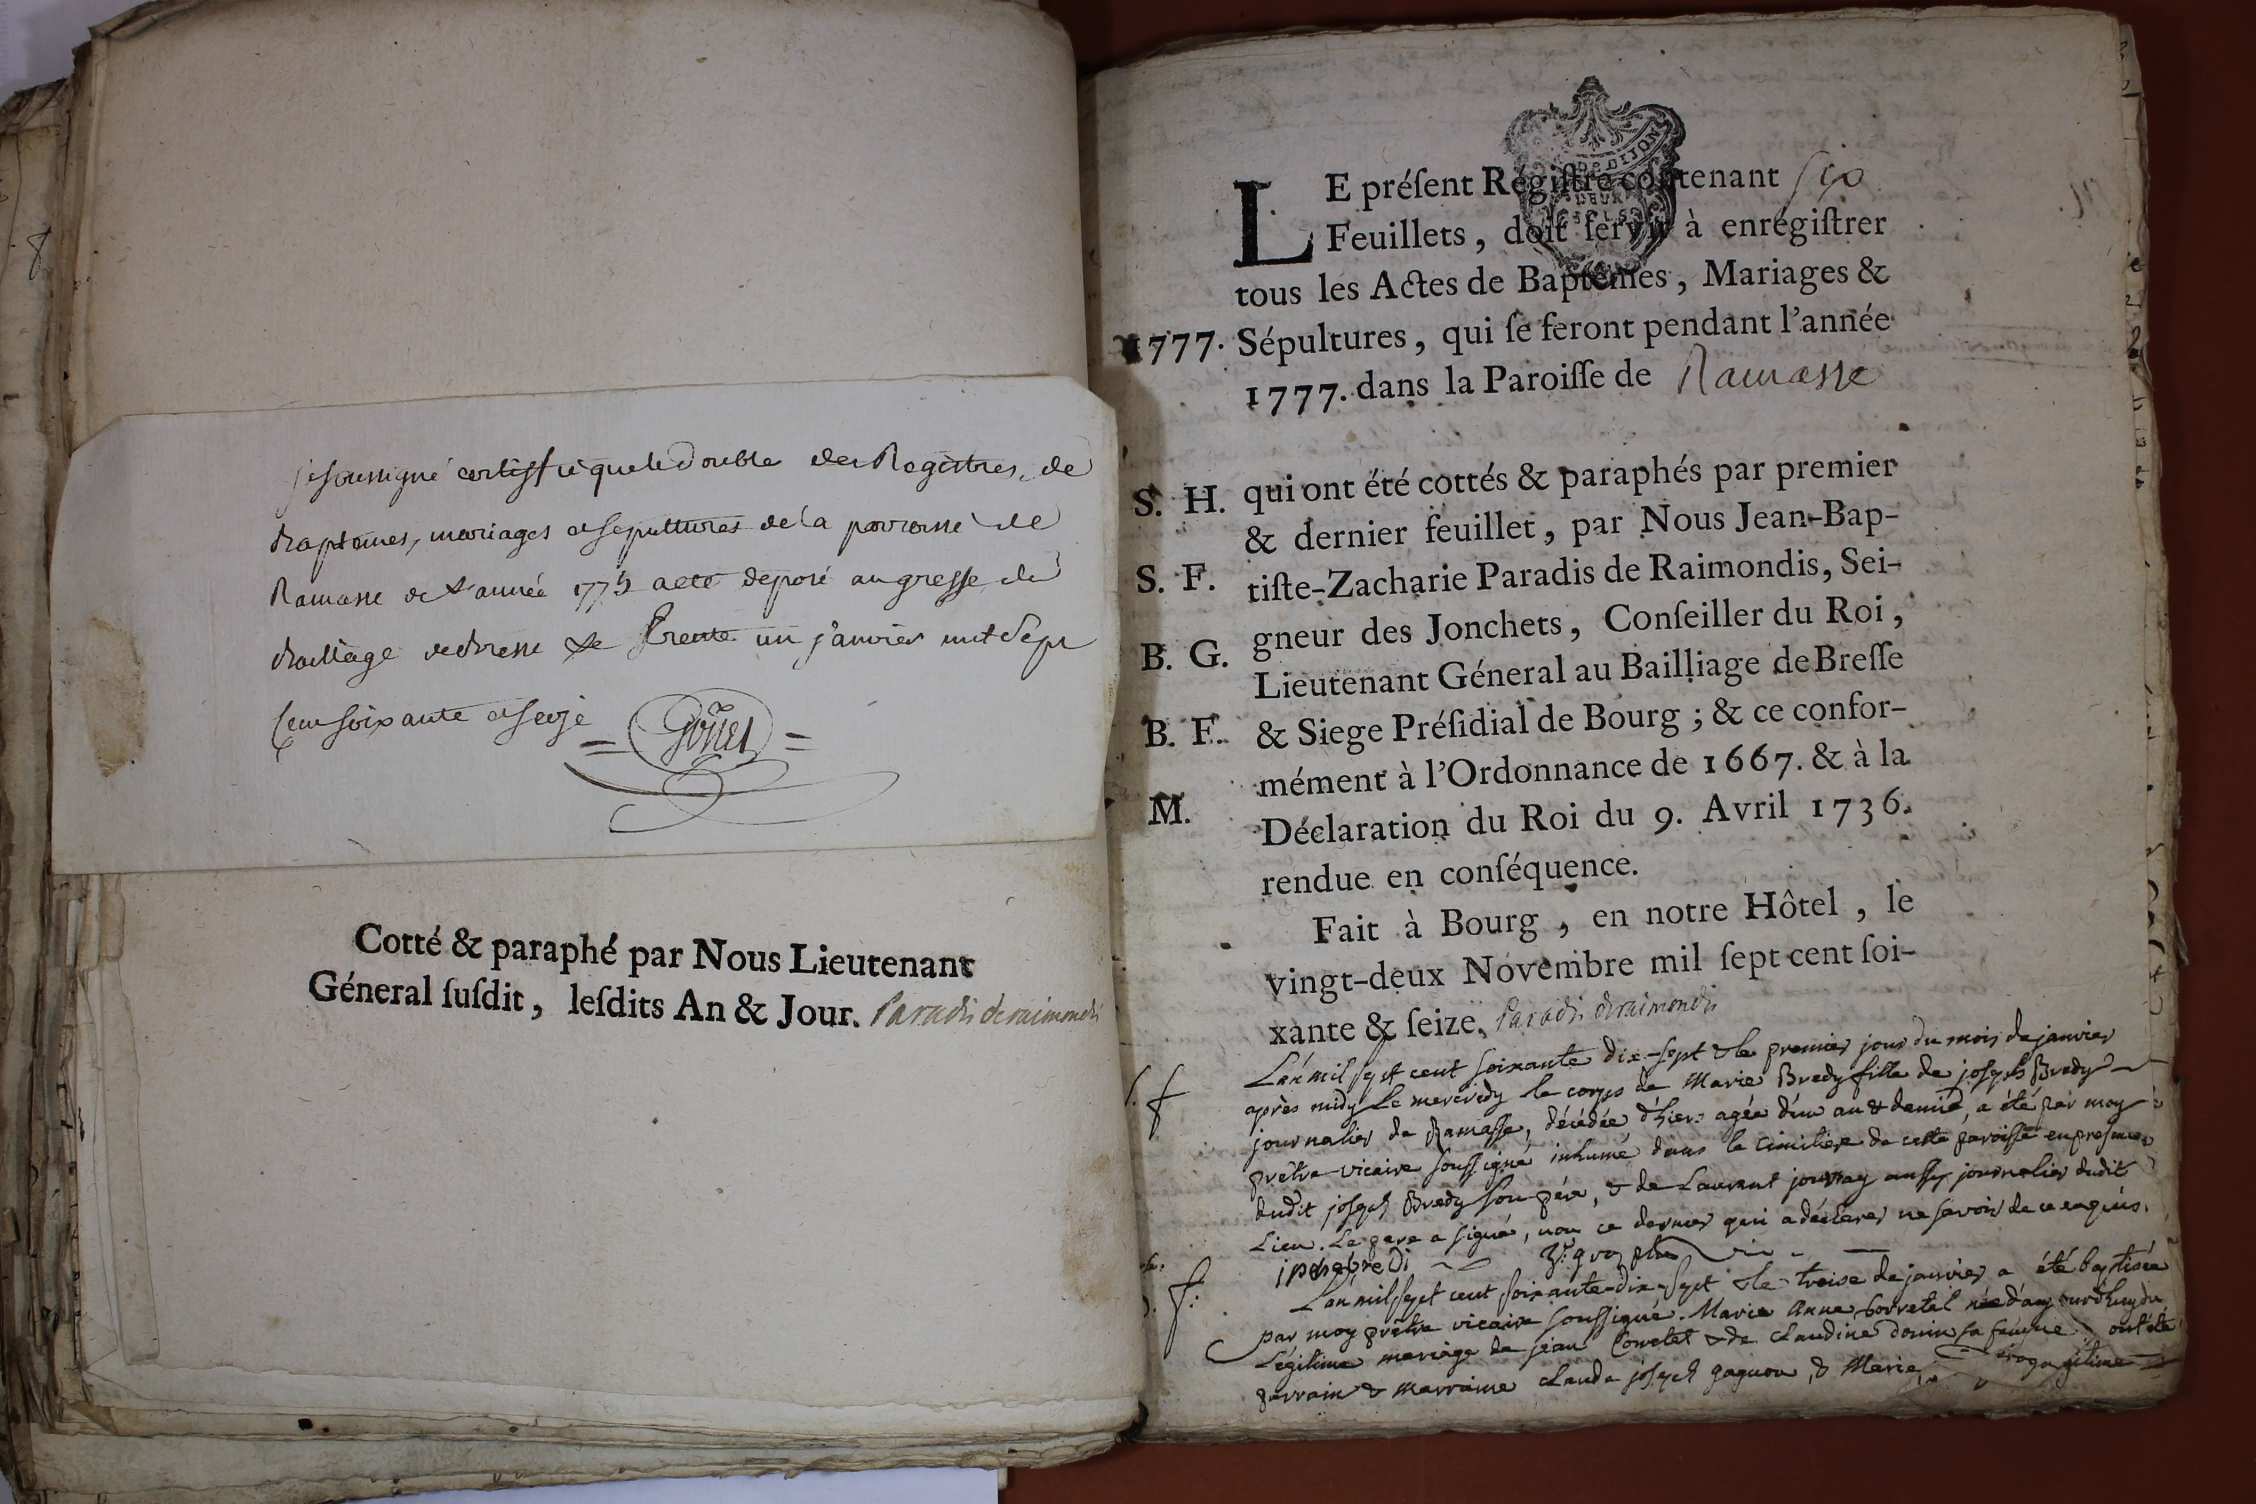 je soussigné certiffie que le double des Registres de
Baptemes, mariages et sepultures de la parroisse de
Ramasse de L'année 1775 a eté deposé au greffe du
Bailliage de Bresse Le trente un janvier mil sept
cent soixante et seize
Cotté & paraphé par Nous Lieutenant
Géneral ſuſdit, leſdits An & Jour. Paradis de raimondis
DE DIJON
DEUX
SOLS
LE préſent Régiſtre contenant six
Feuillets, doit ſervir à enrégiſtrer
tous les Actes de Baptêmes, Mariages &
1777. Sépultures, qui ſe feront pendant l'année
1777. dans la Paroiſſe de Ramasse
S. H. qui ont été cottés & paraphés par premier
& dernier feuillet, par Nous Jean-Bap-
S. F. tiſte-Zacharie Paradis de Raimondis, Sei-
gneur des Jonchets, Conſeiller du Roi,
B. G. Lieutenant Géneral au Bailliage de Breſſe
B. F. & Siege Préſidial de Bourg; & ce confor-
mément à l'Ordonnance de 1667. & à la
M. Déclaration du Roi du 9. Avril 1736.
rendue en conſéquence.
Fait à Bourg, en notre Hôtel, le
vingt-deux Novembre mil ſept cent ſoi-
xante & ſeize. Paradis de raimondis
L'an mil sept cent soixante dix-sept & le premier jour du mois de janvier
après midy Le mercredy le corps de Marie Bredy fille de joseph Bredy
journalier de Ramasse, décédée d'hier agée d'un an & demie, a été par moy
prêtre vicaire soussigné inhumé dans le cimitiere de cette paroisse en presence
dudit joseph Bredy son père, & de Laurent aussy journalier dudit
Lieu. Le pere a signé, non ce dernier qui a déclaré ne savoir de ce enquis.
L'an mil sept cent soixante-dix-sept & le treise de janvier a été baptisée
par moy prêtre vicaire soussigné. Marie Anne née d'aujourd'huy du
Légitime mariage de jean & de Claudine sa femme ont été
parrain & marraine claude joseph & Marie